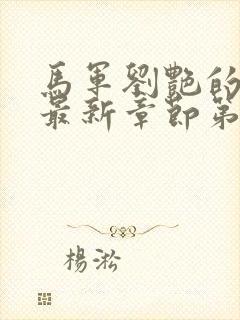 馬軍劉艷的
最新章節第
楊淞